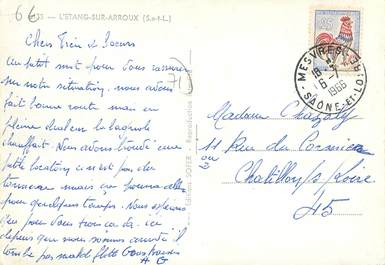 66
— L'ETANG-SUR-ARROUX (S.-et-L.)
Chers Frère et Soeurs
un petit mot pour vous rassurer
sur notre situation, nous avons
fait bonne route mais en
pleine chaleur la bagnole
chauffait. Nous avons trouvé une
petite location, c'est pas du
tonnerre mais ça pourra aller
pour quelques temps. Nous espérons
que pour vous tous ça va. ici
depuis que nous sommes arrivé il
tombe pas mal de flotte
71
MESVRES
18
6
1966
SAONE-ET-LOIRE
Madame Chapaty
11 Rue du
Chatillon s/ Loire
45